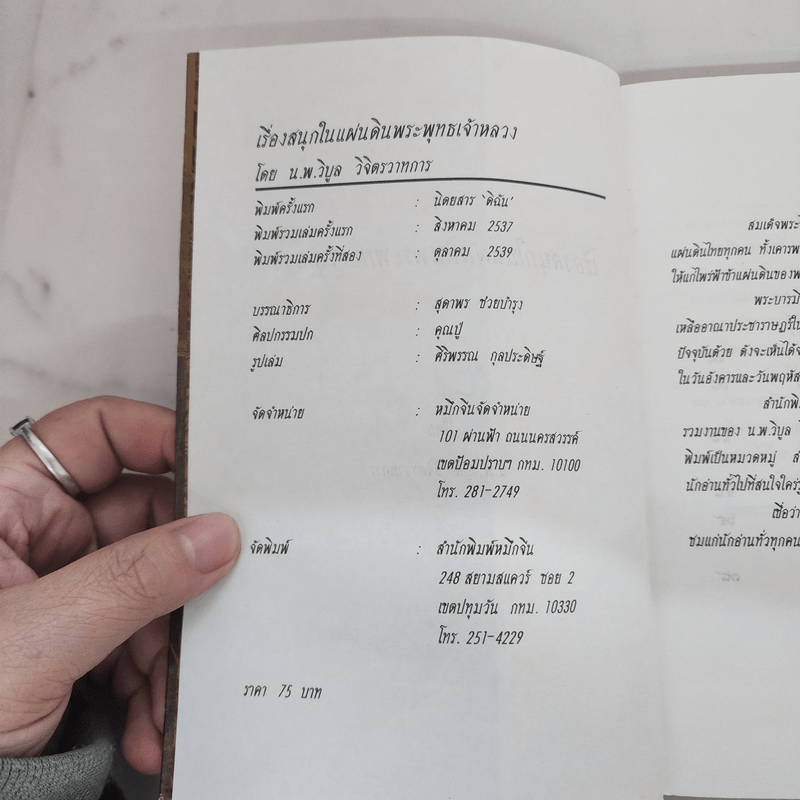 เรื่องสนุกในแผ่นดินพระพุทธเจ้าหลวง
โดย น.พ.วิบูล วิจิตรวาทการ
พิมพ์ครั้งแรก : นิตยสาร 'ดิฉัน'
พิมพ์รวมเล่มครั้งแรก : สิงหาคม 2537
พิมพ์รวมเล่มครั้งที่สอง : ตุลาคม 2539
บรรณาธิการ : สุดาพร ช่วยบำรุง
ศิลปกรรมปก : คุณปู่
รูปเล่ม : ศิริพรรณ กุลประดิษฐ์
จัดจำหน่าย : หมึกจีนจัดจำหน่าย
101 ผ่านฟ้า ถนนนครสวรรค์
เขตป้อมปราบฯ กทม. 10100
โทร. 281-2749
จัดพิมพ์ : สำนักพิมพ์หมึกจีน
248 สยามสแควร์ ซอย 2
เขตปทุมวัน กทม. 10330
โทร. 251-4229
ราคา 75 บาท
สมเด็จพระ
แผ่นดินไทยทุกคน ทั้งเคารพ
ให้แก่ไพร่ฟ้าข้าแผ่นดินของพ
พระบารมี
เหลืออาณาประชาราษฎร์ใน
ปัจจุบันด้วย ดังจะเห็นได้จ
ในวันอังคารและวันพฤหัส
สำนักพิม
รวมงานของ น.พ.วิบูล
พิมพ์เป็นหมวดหมู่ ส
นักอ่านทั่วไปที่สนใจใคร่รู
เชื่อว่า
ชมแก่นักอ่านทั่วทุกคน